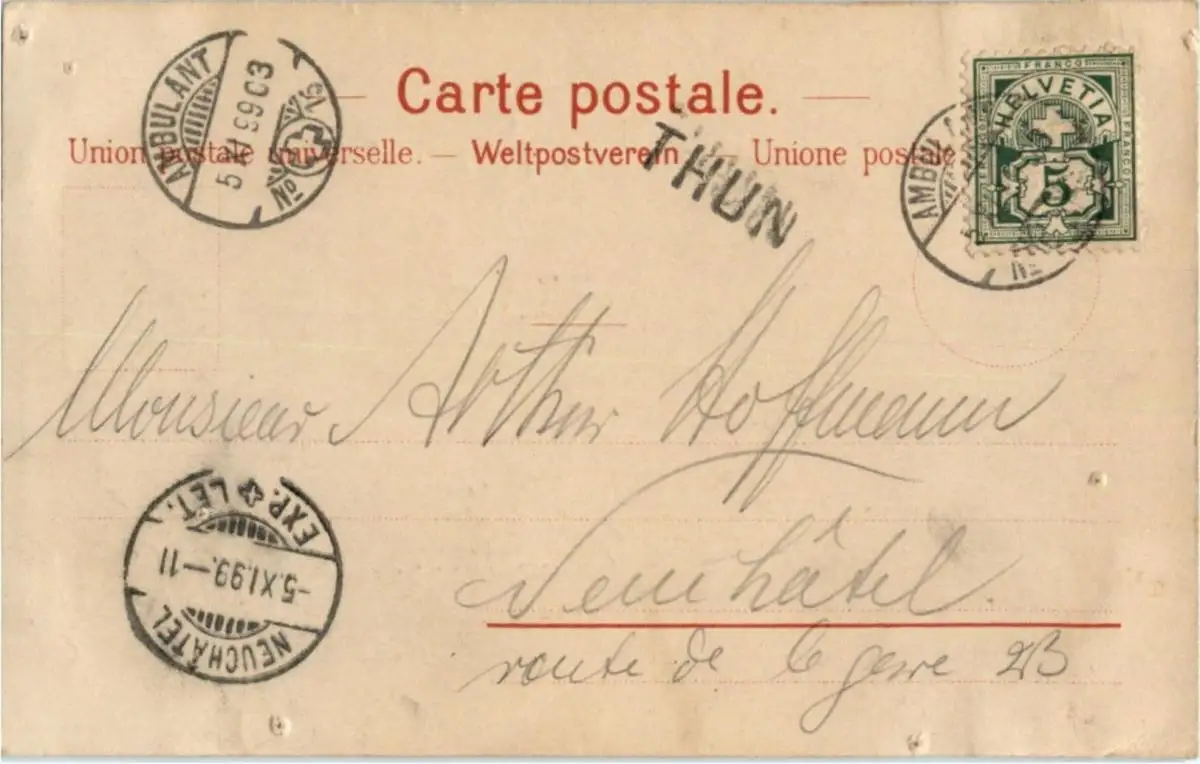 Carte postale.
Union postale universelle. — Weltpostverein — Unione postale
THUN
AMBULANT
5 XI 99 03
No
FRANCO
HELVETIA
FRANCO
5
AMBUL
No
Monsieur Arthur Hoffmann
Neuchâtel.
route de la gare 23
EXP. LET.
-5.XI.99.-11
NEUCHÂTEL